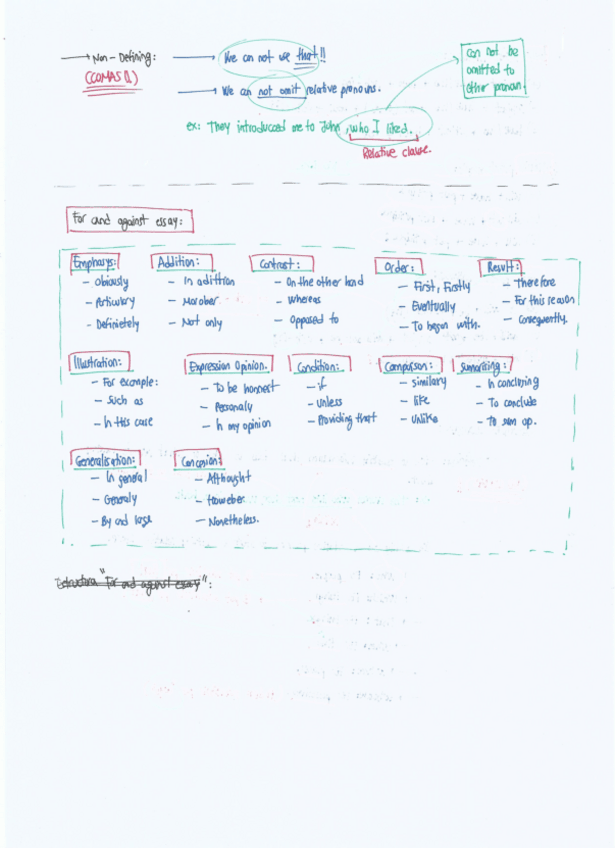 Non - Defining:
(COMAS (,))
We can not use that!!
We can not omit relative pronouns.
can not be
omitted to
other pronoun.
ex: They introduced me to John, who I liked.
Relative clause.
For and against essay:
Emphasys:
- Obiusly
- Particulary
- Definietely
Addition:
- In adittion
- Marober
- Not only
Contrast:
- On the other hand
- Whereas
- Opposed to
Order:
- First, Firstly
- Eventually
- To begin with.
Result:
- Therefore
- For this reason
- Consequently.
Illustration:
- For example:
- Such as
- In this case
Expression Opinion.
- To be honnest
- Personaly
- In my opinion
Condition:
- if
- Unless
- Providing that
Comparison:
- similary
- like
- Unlike
Sumarizing:
- In concluying
- To conclude
- To sum up.
Generalisation:
- In general
- Generaly
- By and large
Concesion:
- Althought
- Howeber
- Nonetheless.
Estructura "For and against essay":